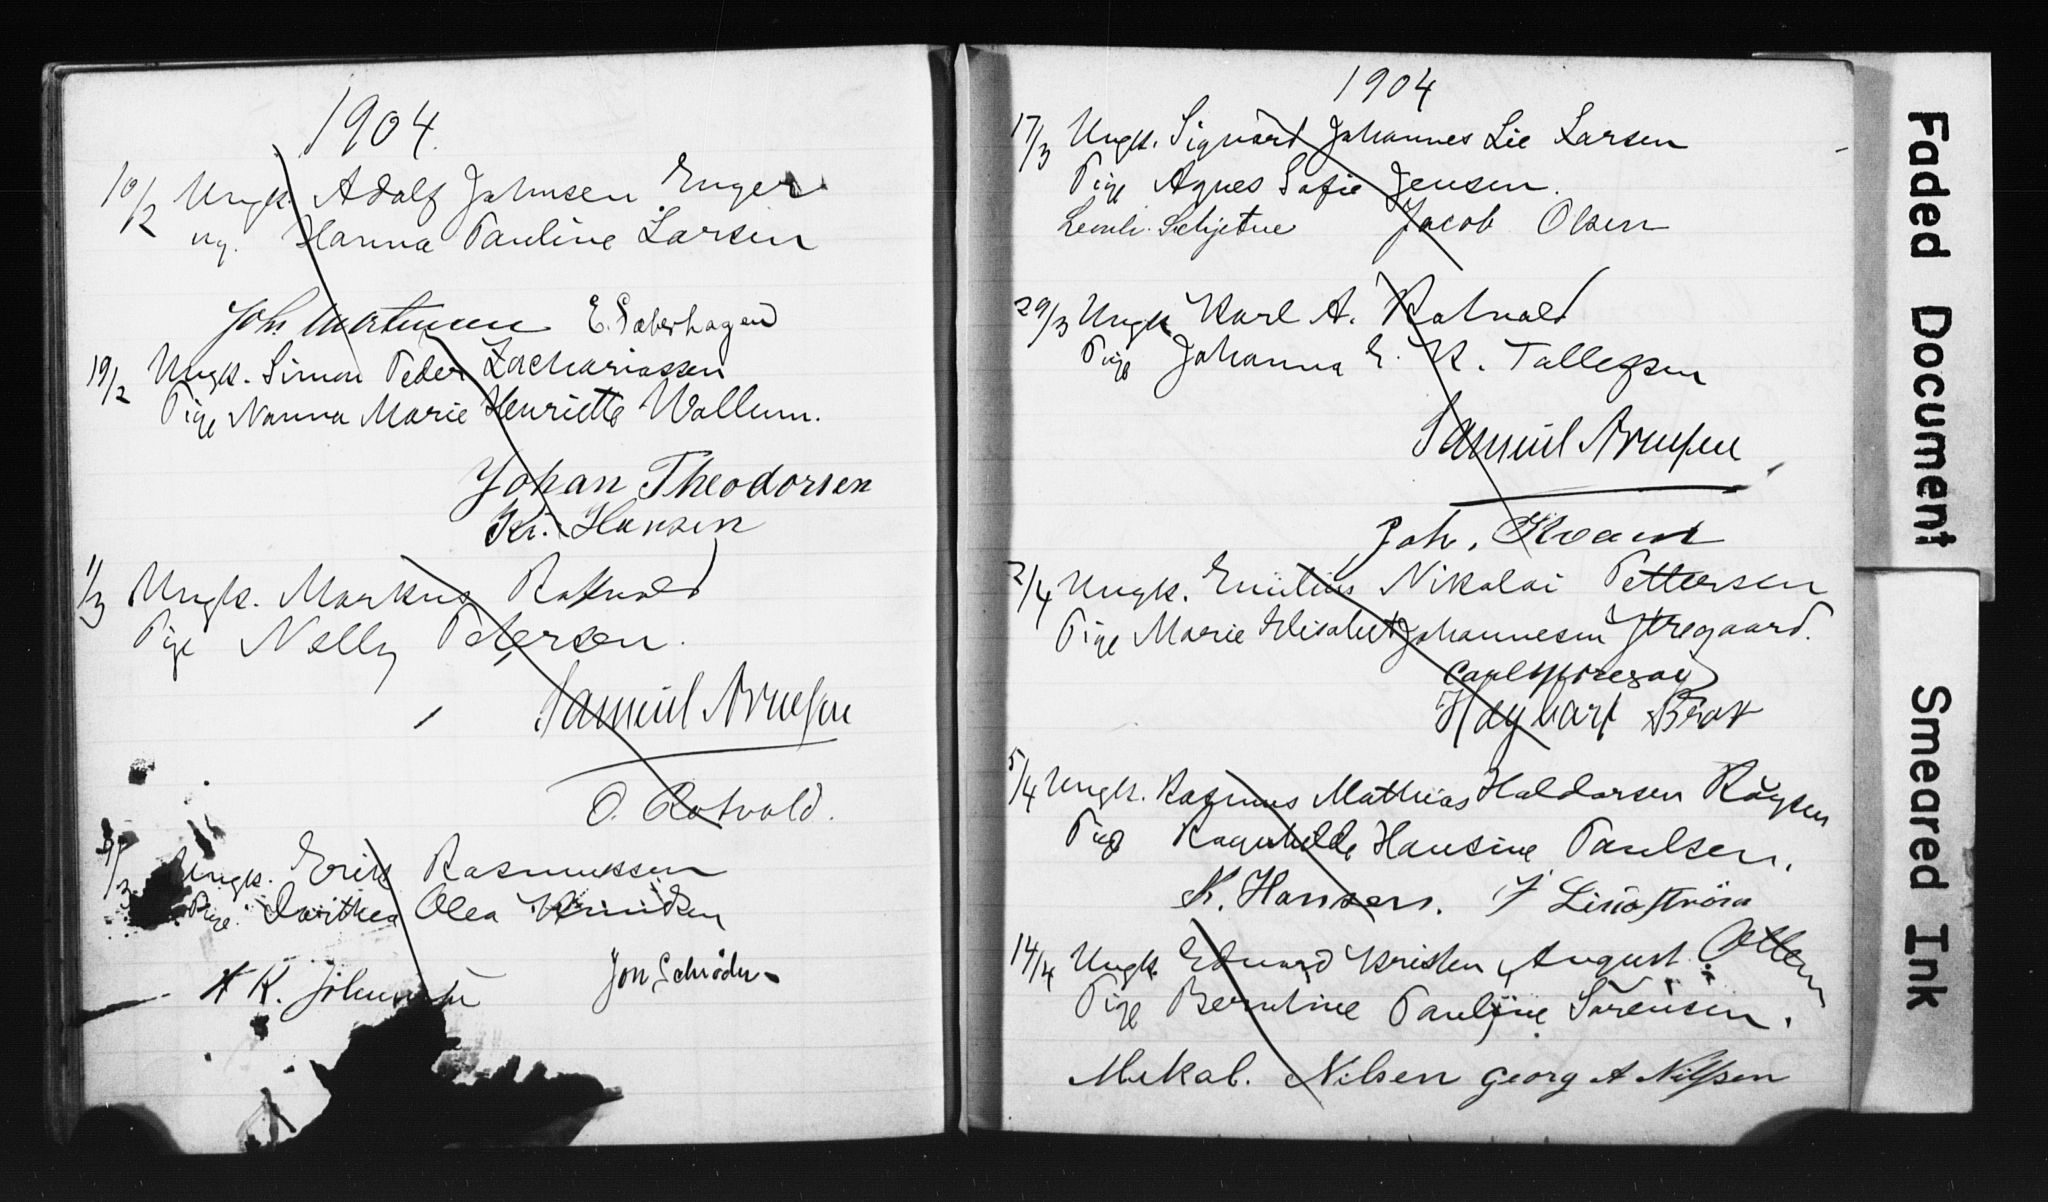 1904.
10/2 Ungk. Adolf Johnsen Enger
ng. Hanna Pauline Larsen
Joh. Martinsen E. Sæterhagen
19/2 Ungk. Simon Peder Zachariassen
Pige Nanna Marie Henriette Wollum.
Johan Theodorsen
Kr. Hansen
1/3 Ungk. Markus Rotvold
Pige Nelly Petersen.
Samuel Arnesen
O. Rotvold.
/3 Ungk. Erik Rasmussen
Pige Dorthea Olea
K. Johansen Jon Schrøder
1904
17/3 Ungk. Sigvard Johannes Lie Larsen
Pige Agnes Sofie Jensen.
Schjetne Jacob Olsen
29/3 Ungk Karl A. Rotvold
Pige Johanna E. K. Tollefsen
Samuel Arnesen
Joh. Kvam
2/4 Ungk. Emilius Nikolai Pettersen
Pige Marie Elisabet Johannesen Ytregaard.
Carl
Hagbart Brox
5/4 Ungk. Rasmus Mathias Haldorsen Röysen
Pige Ragnhilde Hansine Paulsen.
K. Hansen. J Lindström
14/4 Ungk. Edvard Kristen August Olsen
Pige Berntine Pauline Sörensen.
Mikal. Nilsen Georg A Nilssen
Faded Document
Smeared Ink